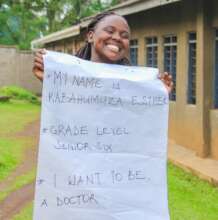 * MY NAME IS
KABAHUMUZA ESTHER
* GRADE LEVEL
SENIOR SIX
* I WANT TO BE
A DOCTOR